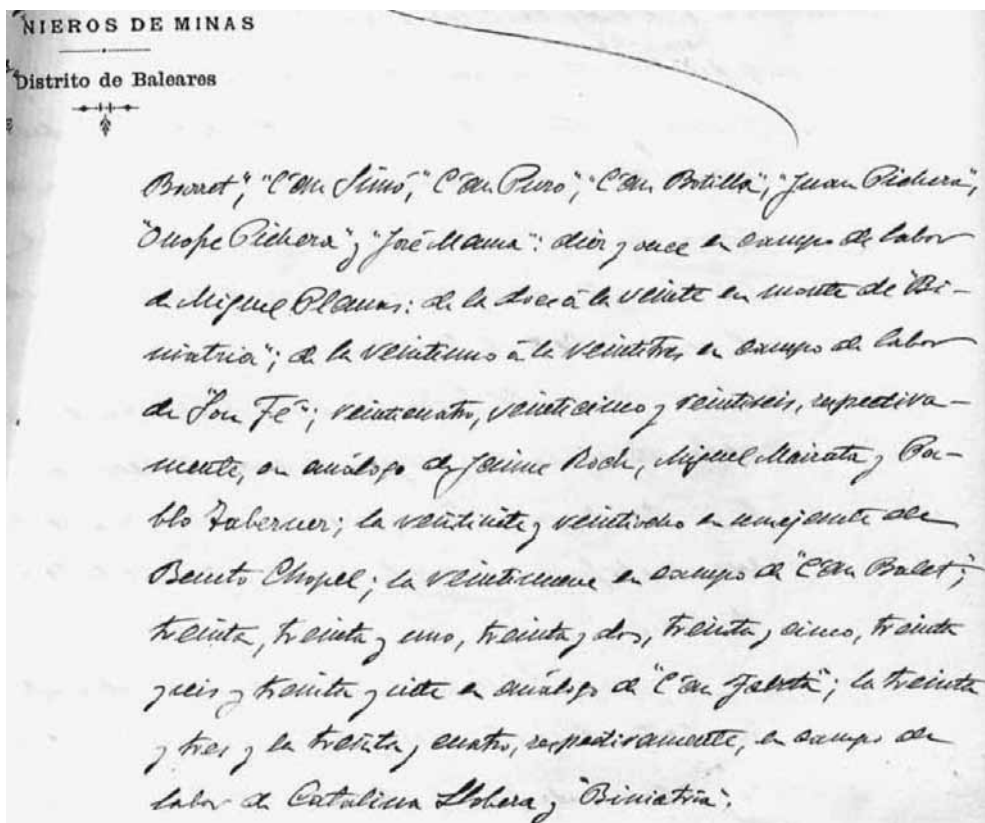 NIEROS DE MINAS
Distrito de Baleares
Borret", "C'an Simó", "C'an Puro", "C'an Botilla", "Juan Pichera",
"Onofre Pichera" y "José Mama": diez y once en campo de labor
de Miguel Planas: de la doce á la veinte en monte de "Bi-
niatria"; de la veintiuno á la veintitres en campo de labor
de "Son Fé"; veinticuatro, veinticinco y veintiseis, respectiva-
mente, en análogo de Jaime Roch, Miguel Mairata y Pa-
blo Taberner; la veintisiete y veintiocho en semejante de
Benito Chopel; la veintinueve en campo de "C'an Balet";
treinta, treinta y uno, treinta y dos, treinta y cinco, treinta
y seis y treinta y siete en análogo de "C'an"; la treinta
y tres y la treinta y cuatro, respectivamente, en campo de
labor de Catalina Llobera y "Biniatria".